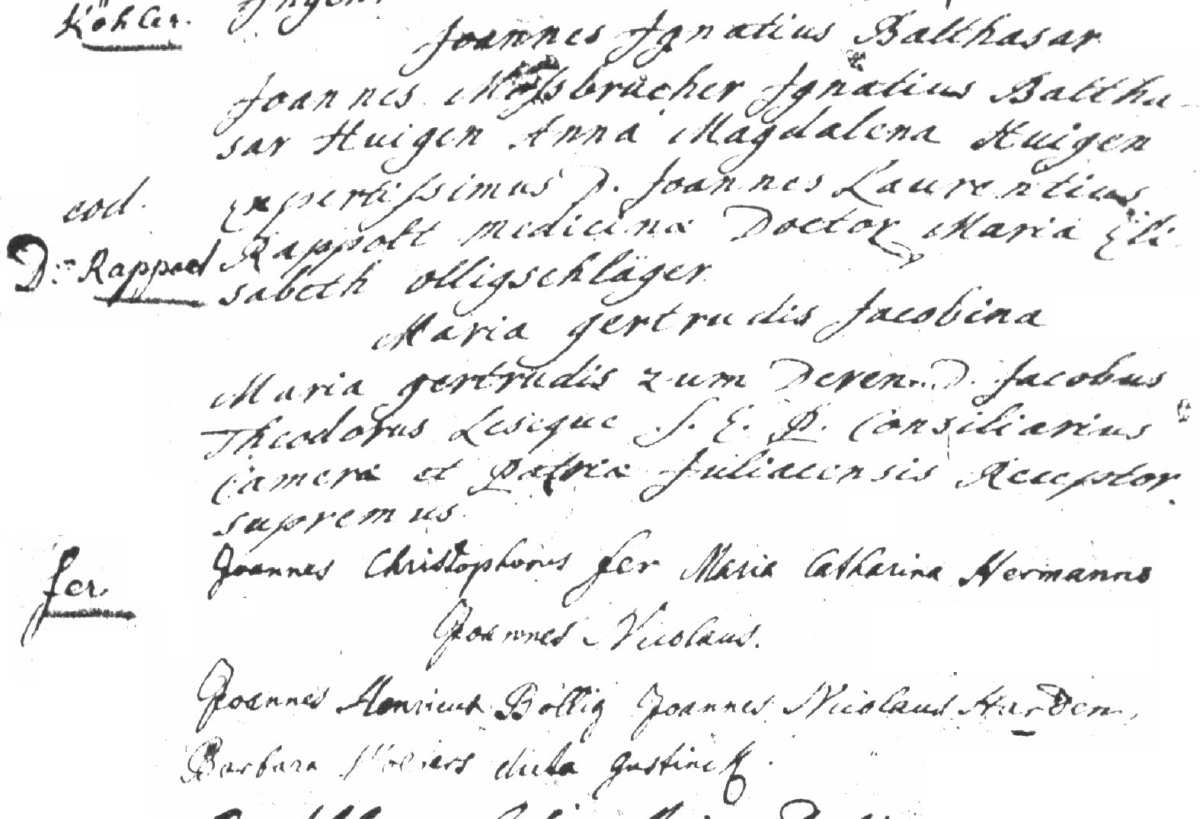 Köhler.
Joannes Ignatius Balthasar
Joannes Mossbrücher Ignatius Baltha-
sar Huigen Anna Magdalena Huigen
eod. expertissimus D. Joannes Laurentius
D: Rappolt Rappolt medicinæ Doctor Maria Eli
sabeth olligschläger
Maria gertrudis Jacobina
Maria gertrudis zum Deren D. Jacobus
Theodorus Leseque S. E. P. Consiliarius
Cameræ et patriæ Juliacensis Receptor
supremus
fer. Joannes Christophorus fer Maria Catharina Hermanns
Joannes Nicolaus.
Joannes Henricus Bollig Joannes Nicolaus Harden,
Barbara dicta